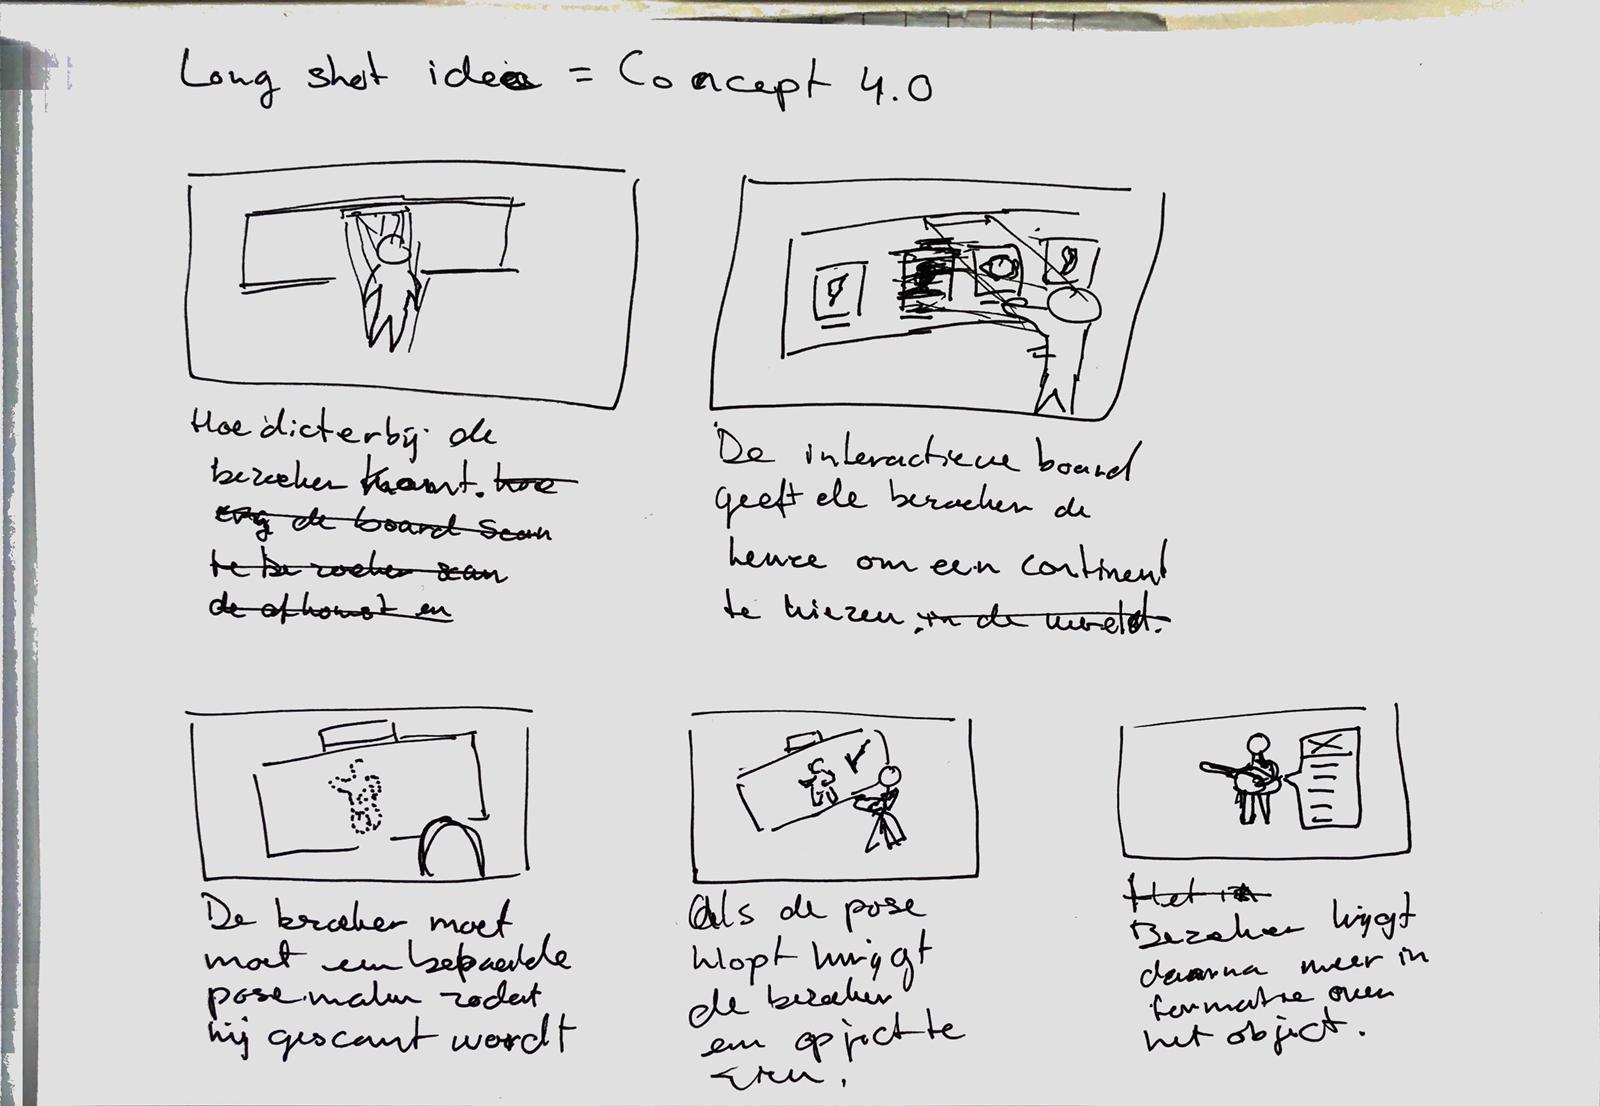 Long shot idee = Concept 4.0
Hoe dicterbij de
bezoeker komt. hoe
erg de board scan
te bezoeker scan
de afkomst en
De interactieve board
geeft de bezoeker de
keuze om een continent
te kiezen. in de wereld.
De bezoeker moet
moet een bepaalde
pose maken zodat
hij gescant wordt
Als de pose
klopt krijgt
de bezoeker
een opject te
zien.
Het is
Bezoeker krijgt
daarna meer in
formatie over
het object.